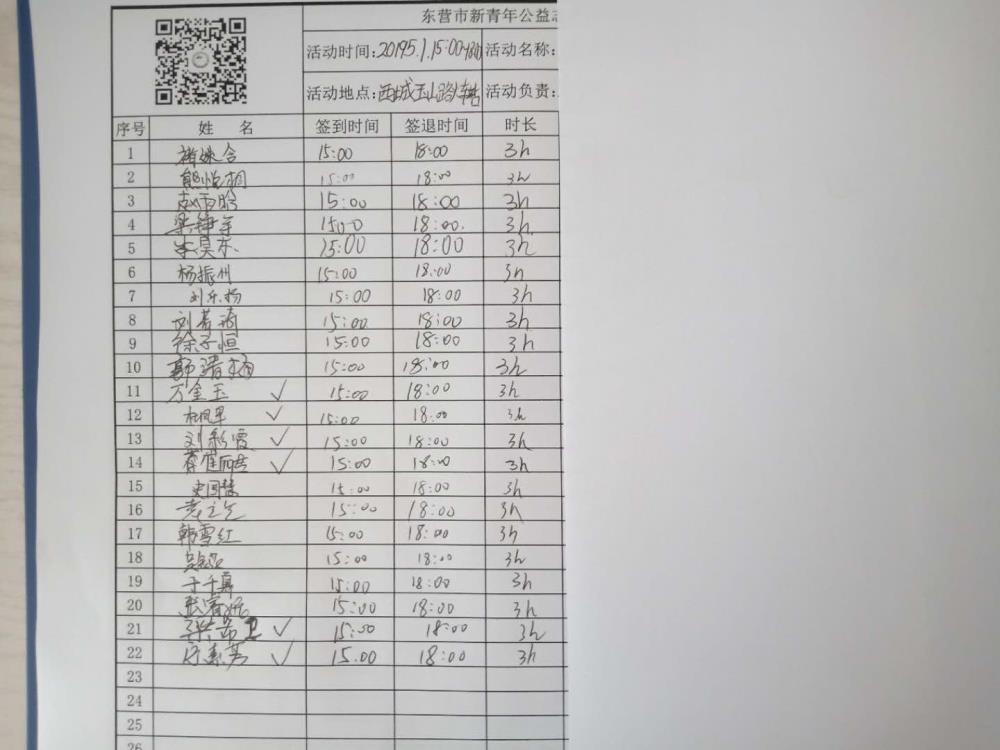 东营市新青年公益
活动时间:2019.5.1.15:00-18:00 活动名称:
活动地点:西城玉山路 活动负责:
序号 姓 名 签到时间 签退时间 时长
1 15:00 18:00 3h
2 熊悦桐 15:00 18:00 3h
3 赵雨晗 15:00 18:00 3h
4 15:00 18:00. 3h.
5 李昊东 15:00 18:00 3h
6 杨振州 15:00 18:00 3h
7 刘乐扬 15:00 18:00 3h
8 刘 15:00 18:00 3h
9 徐子恒 15:00 18:00 3h
10 郭 15:00 18:00 3h
11 万金玉 ✓ 15:00 18:00 3h
12 ✓ 15:00 18:00 3h
13 刘彩霞 ✓ 15:00 18:00 3h
14 ✓ 15:00 18:00 3h
15 15:00 18:00 3h
16 15:00 18:00 3h
17 韩雪红 15:00 18:00 3h
18 15:00 18:00 3h
19 于千 15:00 18:00 3h
20 张 15:00 18:00 3h
21 梁 卫 ✓ 15:00 18:00 3h
22 ✓ 15.00 18:00 3h
23
24
25
26